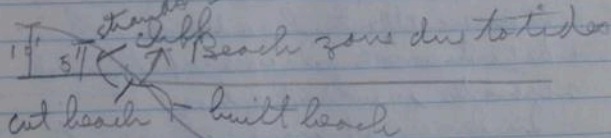 strand
1' 5' Cliff Beach zone due to tides
cut beach built beach